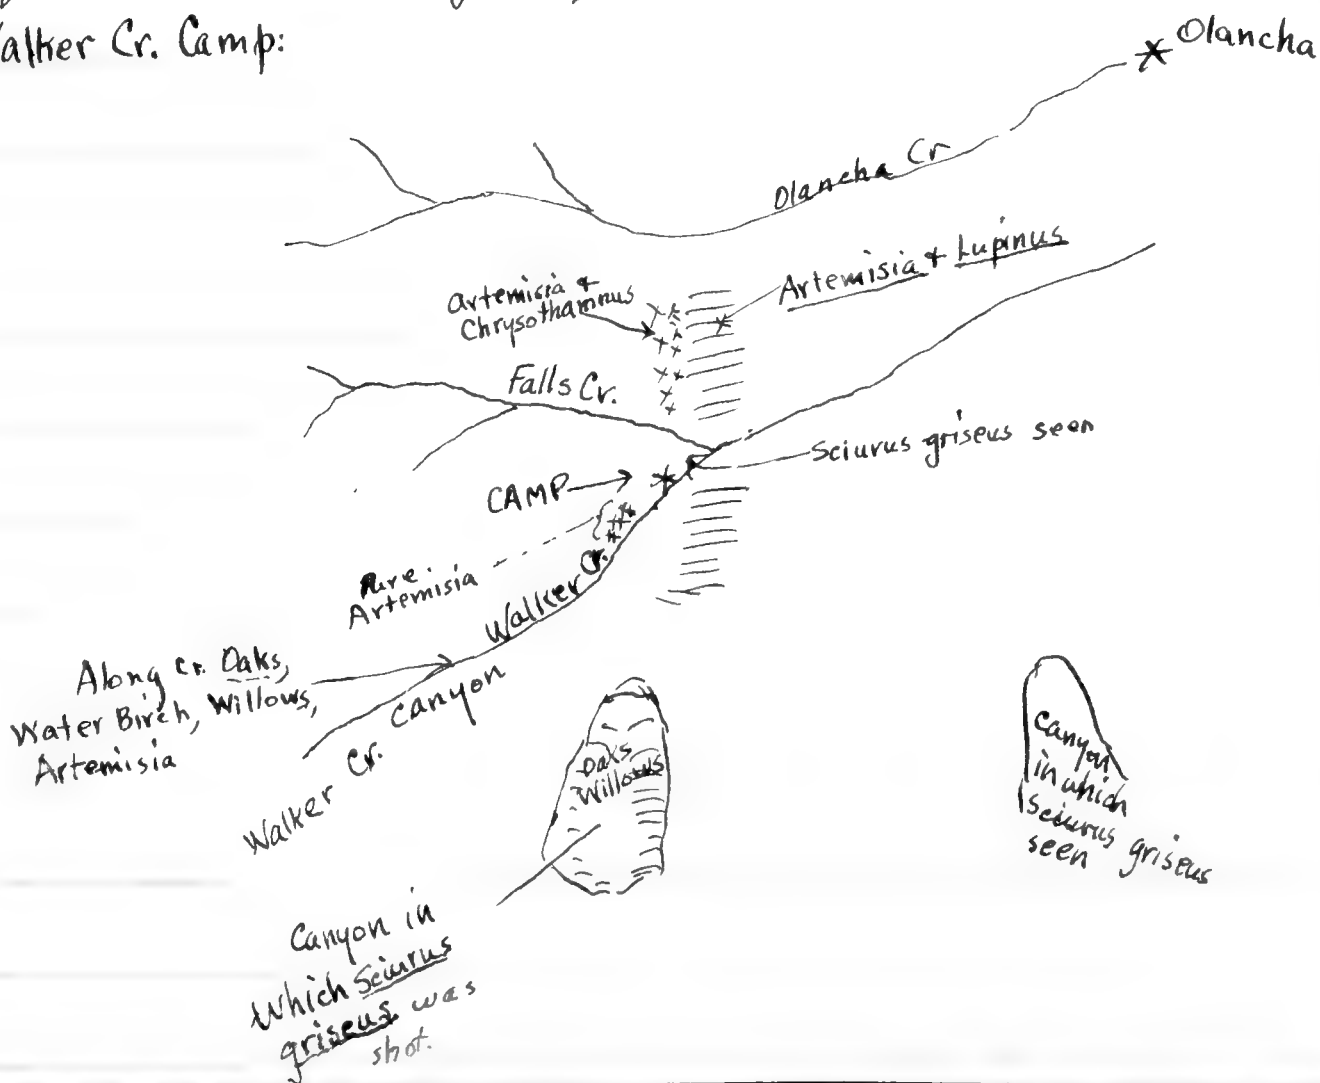 alker Cr. Camp:
Olancha
Olancha Cr
Artemisia + Lupinus
Artemisia +
Chrysothamnus
Falls Cr.
Sciurus griseus seen
CAMP
Pure
Artemisia
Walker Cr.
Along Cr. Oaks,
Water Birch, Willows,
Artemisia
Walker Cr. Canyon
Oaks
Willows
Canyon
in which
Sciurus griseus
seen
Canyon in
which Sciurus
griseus was
shot.